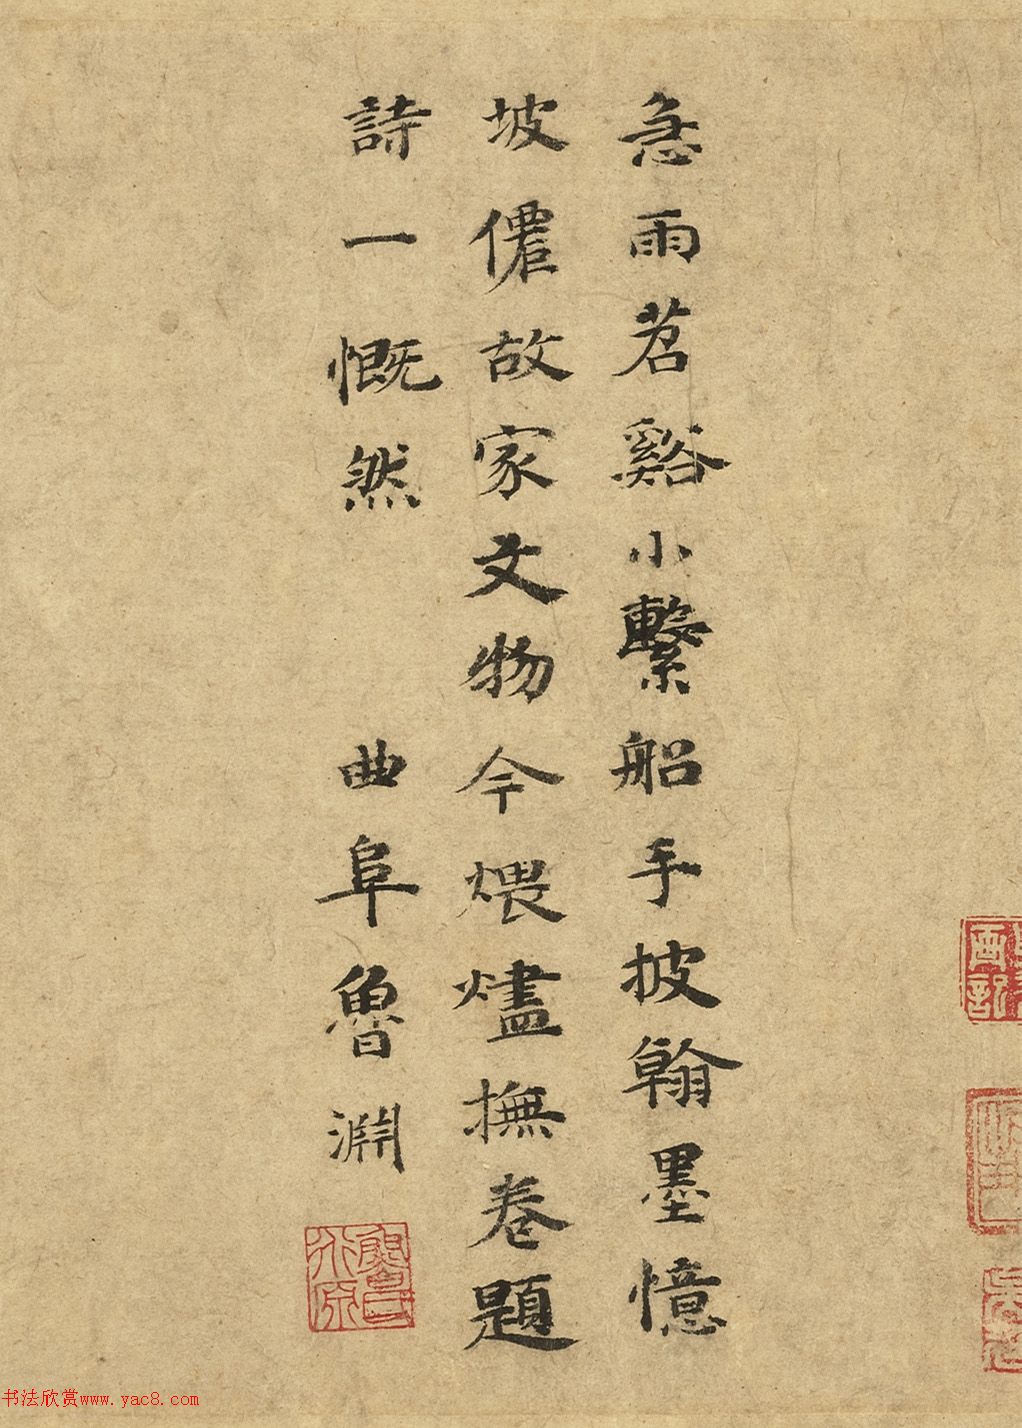 急雨苕谿小繫船手披翰墨憶
坡僊故家文物今煨燼撫卷題
詩一慨然 曲阜魯淵
书法欣赏www.yac8.com